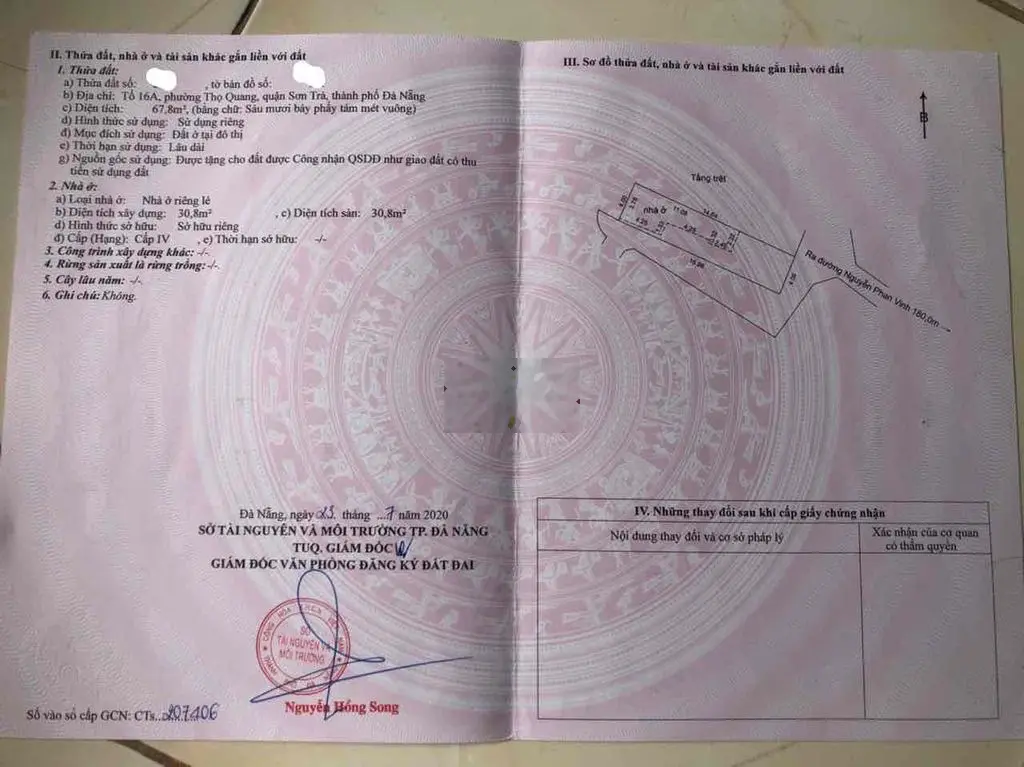 II. Thửa đất, nhà ở và tài sản khác gắn liền với đất
1. Thửa đất:
a) Thửa đất số: , tờ bản đồ số:
b) Địa chỉ: Tổ 16A, phường Thọ Quang, quận Sơn Trà, thành phố Đà Nẵng
c) Diện tích: 67,8m², (bằng chữ: Sáu mươi bảy phẩy tám mét vuông)
d) Hình thức sử dụng: Sử dụng riêng
đ) Mục đích sử dụng: Đất ở tại đô thị
e) Thời hạn sử dụng: Lâu dài
g) Nguồn gốc sử dụng: Được tặng cho đất được Công nhận QSDĐ như giao đất có thu
tiền sử dụng đất
2. Nhà ở:
a) Loại nhà ở: Nhà ở riêng lẻ
b) Diện tích xây dựng: 30,8m² , c) Diện tích sàn: 30,8m²
d) Hình thức sở hữu: Sở hữu riêng
đ) Cấp (Hạng): Cấp IV , e) Thời hạn sở hữu: -/-
3. Công trình xây dựng khác: -/-.
4. Rừng sản xuất là rừng trồng: -/-.
5. Cây lâu năm: -/-.
6. Ghi chú: Không.
Đà Nẵng, ngày 23 tháng ...7 năm 2020
SỞ TÀI NGUYÊN VÀ MÔI TRƯỜNG TP. ĐÀ NẴNG
TUQ. GIÁM ĐỐC
GIÁM ĐỐC VĂN PHÒNG ĐĂNG KÝ ĐẤT ĐAI
SỞ
TÀI NGUYÊN VÀ
MÔI TRƯỜNG
Nguyễn Hồng Song
Số vào sổ cấp GCN: CTs..207406
III. Sơ đồ thửa đất, nhà ở và tài sản khác gắn liền với đất
B
Tầng trệt
nhà ở
11.08
4.25
4.25
2.45
4.06
Ra đường Nguyễn Phan Vinh 180,0m
IV. Những thay đổi sau khi cấp giấy chứng nhận
Nội dung thay đổi và cơ sở pháp lý
Xác nhận của cơ quan
có thẩm quyền